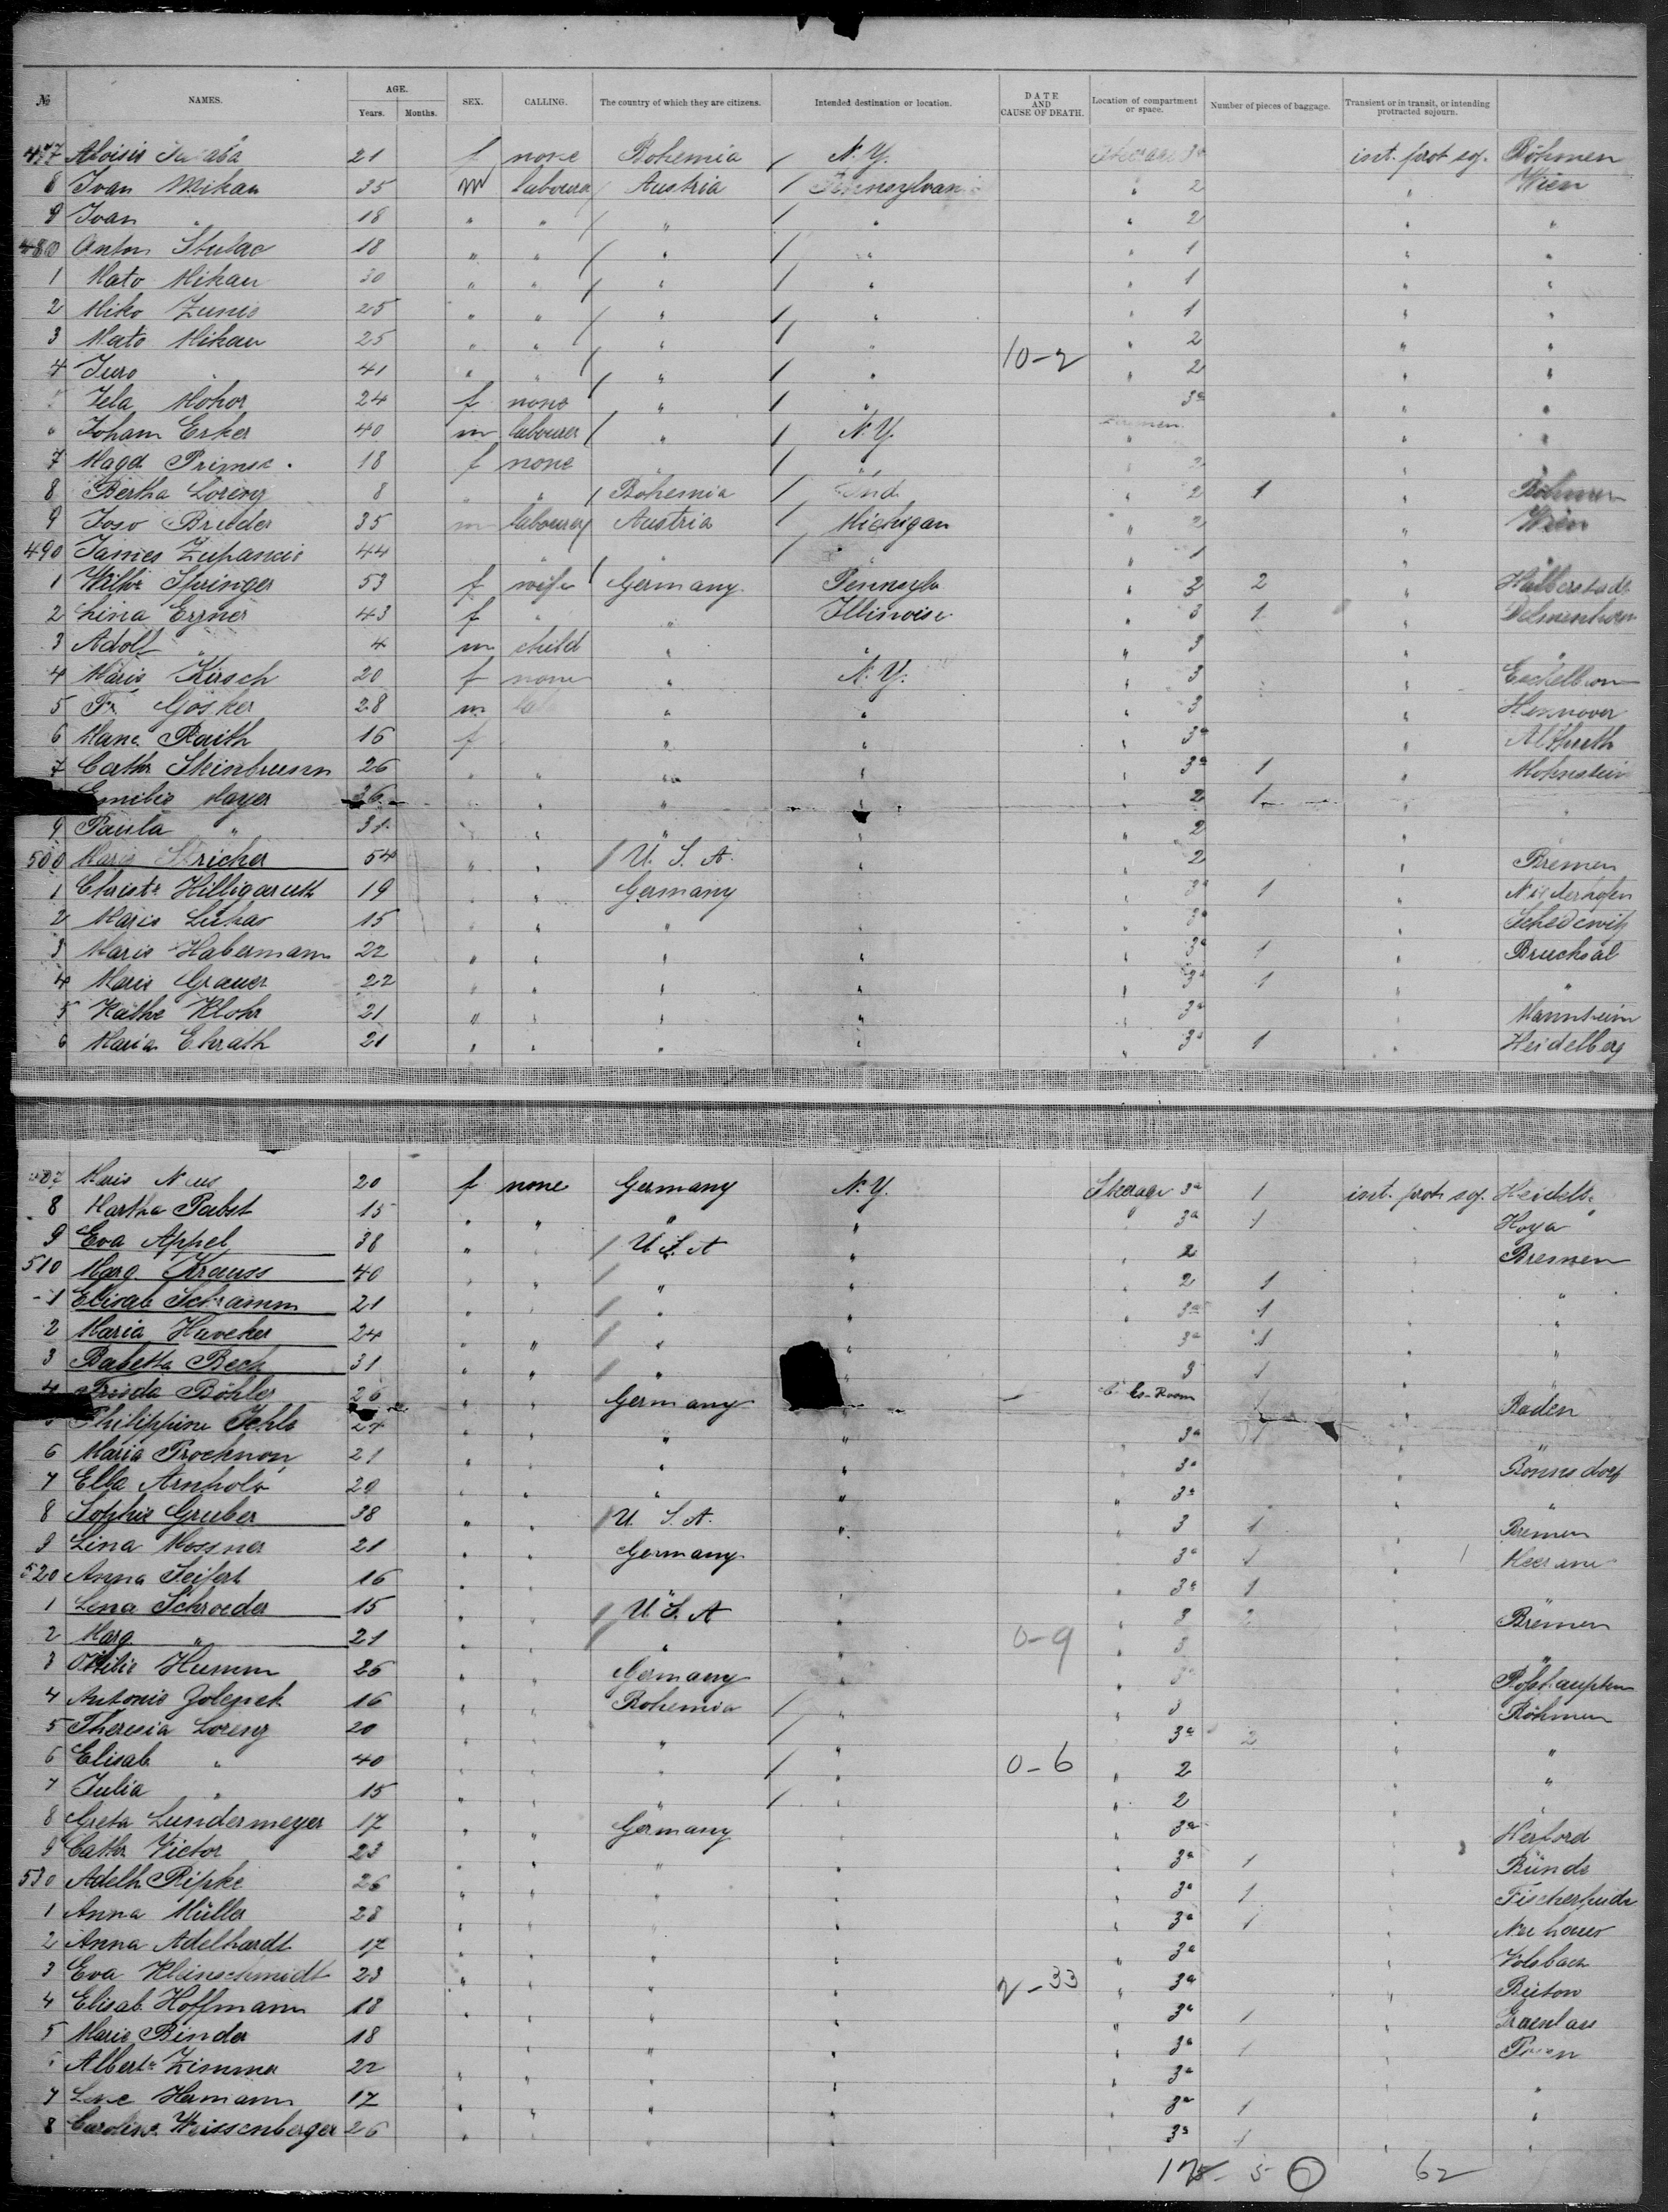 № NAMES. AGE. Years. Months. SEX. CALLING. The country of which they are citizens. Intended destination or location. DATE AND CAUSE OF DEATH. Location of compartment or space. Number of pieces of baggage. Transient or in transit, or intending protracted sojourn.
477 Aloisis 21 f none Bohemia / N. Y. 3a int. prot soj. Böhmen
8 Ivan Mikan 35 m labourer / Austria / Pennsylvani " 2 " Wien
9 Ivan " 18 " " / " / " " 2 " "
480 Anton Stulac 18 " " / " / " " 1 " "
1 Mato Mikan 30 " " / " / " " 1 " "
2 Miko Zunic 25 " " / " / " " 1 " "
3 Mato Mikan 25 " " / " / " 10-2 " 2 " "
4 Juro " 41 " " / " / " " 2 " "
Jela Mohor 24 f none " / " 3a " "
" Joham Erker 40 m labourer / " / N. Y. " " "
7 Magd Primse. 18 f none " / " " 2 "
8 Bertha Lorenz 8 " " / Bohemia / Ind " 2 1 " Böhmen
9 Joso Bruder 35 m labourer / Austria / Michigan " 2 " Wien
490 James Zupancic 44 " " / " " 1 " "
1 Wilhe Springer 53 f wife / Germany Pennsylv " 3 2 " Halberstadt
2 Lina Ezner 43 f " " Illinoise " 3 1 " Delmenhorst
3 Adolf " 4 m child " " " 3 " "
4 Marie Kirsch 20 f none " N. Y. " 3 "
5 Fr. Gösker 28 m " " " 3 " Hannover
6 Raith 16 f " " " 3a "
7 Cathr Steinbrunn 26 " " " " " 3a 1 " Hohnstein
Emilie Mayer 36 " " " " " 2 1 " "
9 Paula " 31 " " " " " 2 " "
500 Marie 54 " " / U. S. A. " " 2 " Bremen
1 Christe Hilligaruth 19 " " Germany " " 3a 1 " Niederhofen
2 Marie Lukas 15 " " " " " 3a " Schedewitz
3 Marie Habermann 22 " " " " " 3a 1 " Bruchsal
4 Marie Grauer 22 " " " " " 3a 1 " "
5 Käthe Klohr 21 " " " " " 3a " Mannheim
6 Maria Ehrath 21 " " " " " 3a 1 " Heidelberg
507 Marie 20 f none Germany N. Y. Steerage 3a 1 int. prot soj. Heidelb.
8 Martha Pabst 15 " " " " " 3a 1 " Hoya
9 Eva Appel 38 " " / U. S. A " " 2 " Bremen
510 Marg. Krauss 40 " " / " " " 2 1 " "
1 Elisab Schramm 21 " " / " " " 3a 1 " "
2 Maria Haveker 24 " " / " " " 3a 1 " "
3 Babetta Beck 31 " " / " " " 3 1 " "
4 Frieda Böhler 26 " " Germany " Room " Baden
Philippine 24 " " " " " 3a 1 " "
6 Maria Procknow 21 " " " " " 3a "
7 Ella Arnhold 20 " " " " " 3a " "
8 Sophie Gruber 38 " " / U. S. A. " " 3 1 " Bremen
9 Lina Mossner 21 " " Germany " " 3a 1 " Meerane
520 Anna Seifert 16 " " " " " 3a 1 " "
1 Lena Schroeder 15 " " / U. S. A " " 3 2 " Bremen
2 Marg. " 21 " " / " " 0-9 " 3 " "
3 Ottilie Humm 26 " " Germany " " 3 "
4 Antonie 16 " " Bohemia / " " 3 " Böhmen
5 Theresia Lorenz 20 " " " / " " 3a 2 " "
6 Elisab " 40 " " " / " 0-6 " 2 " "
7 Julia " 15 " " " / " " 2 " "
8 Greta Lundermeyer 17 " " Germany " " 3a " Herford
9 Cathr Victor 23 " " " " " 3a 1 " Bünde
530 Adelh Ripke 26 " " " " " 3a 1 " Fischerhude
1 Anna Müller 28 " " " " " 3a 1 " Neuhaus
2 Anna Adelhardt 17 " " " " " 3a "
3 Eva Kleinschmidt 23 " " " " 2-33 " 3a " Büton
4 Elisab Hoffmann 18 " " " " " 3a 1 "
5 Marie Binder 18 " " " " " 3a 1 "
Alberte Zimmer 22 " " " " " 3a " "
7 Lene Hamann 17 " " " " " 3a 1 " "
8 Caroline Weissenberger 26 " " " " " 3a 1 " "
5 6 62